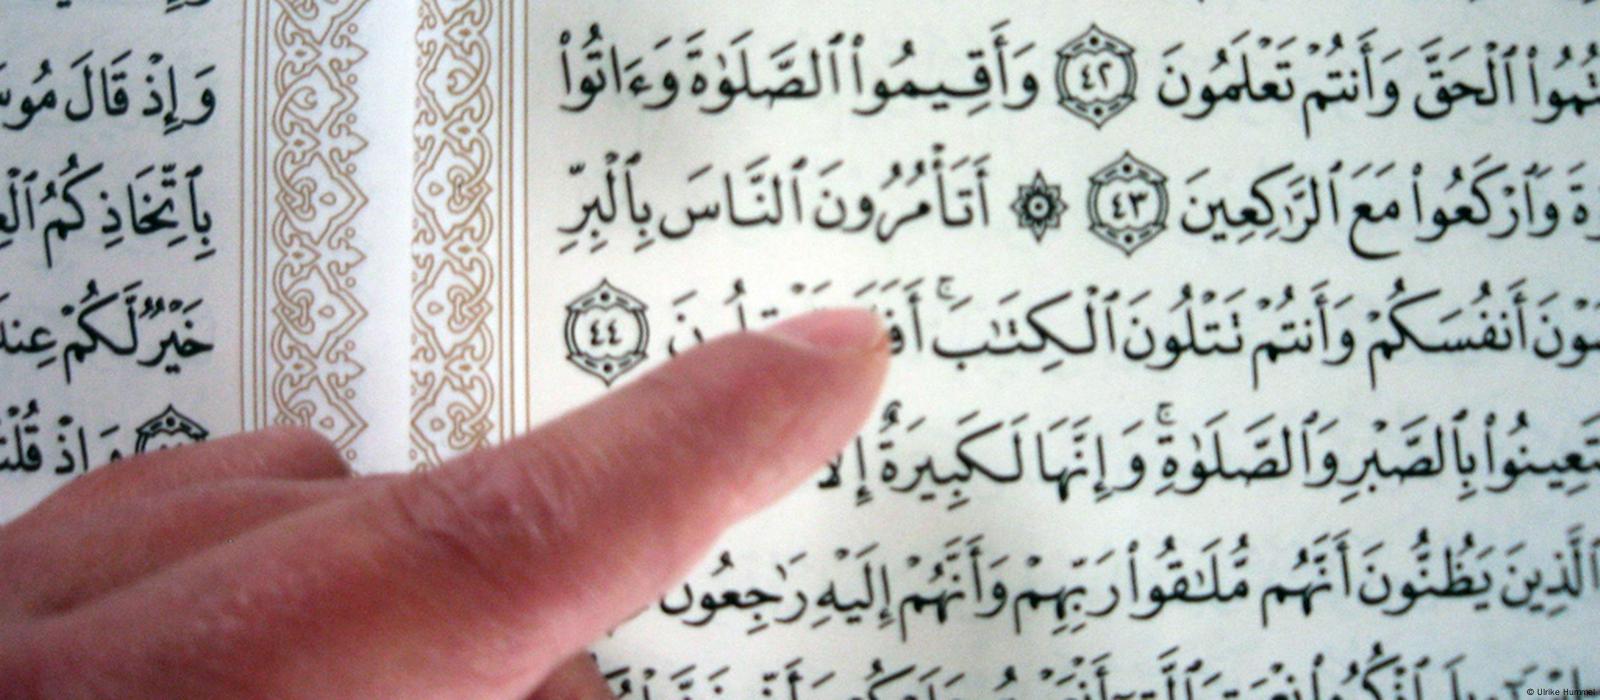 وَأَنتُمْ تَعْلَمُونَ ٤٢ وَأَقِيمُوا۟ ٱلصَّلَوٰةَ وَءَاتُوا۟
وَٱرْكَعُوا۟ مَعَ ٱلرَّٰكِعِينَ ٤٣ ۞ أَتَأْمُرُونَ ٱلنَّاسَ بِٱلْبِرِّ
أَنفُسَكُمْ وَأَنتُمْ تَتْلُونَ ٱلْكِتَٰبَ ۚ ٤٤
بِٱلصَّبْرِ وَٱلصَّلَوٰةِ ۚ وَإِنَّهَا لَكَبِيرَةٌ إِلَّا
ٱلَّذِينَ يَظُنُّونَ أَنَّهُم مُّلَٰقُوا۟ رَبِّهِمْ وَأَنَّهُمْ إِلَيْهِ رَٰجِعُونَ
وَإِذْ قَالَ
بِٱتِّخَاذِكُمُ
خَيْرٌ لَّكُمْ
وَإِذْ
© Ulrike Hummel